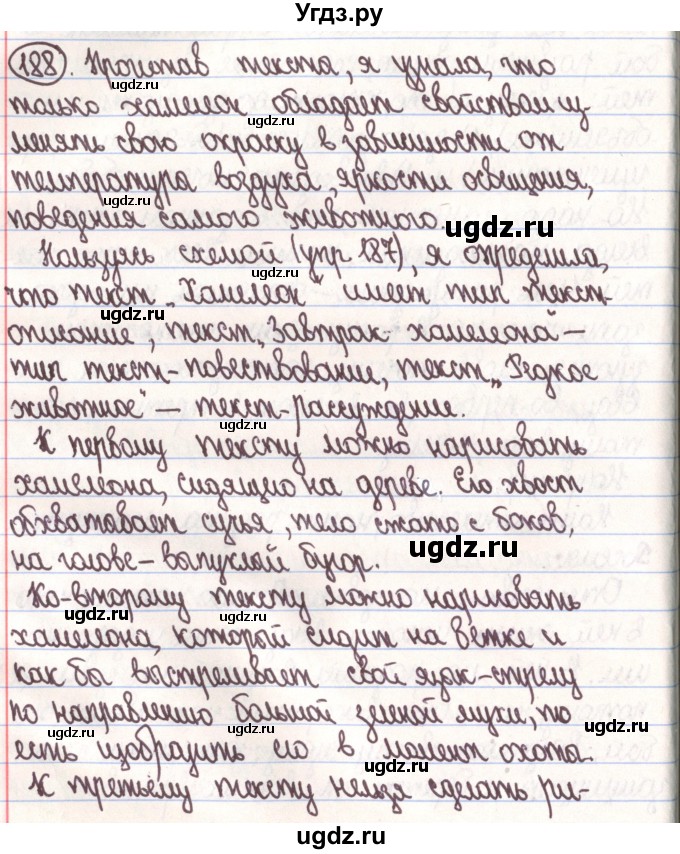 Угдз.ру
188. Прочитав текста, я узнала, что
только хамелеон обладает свойством из-
ugdz.ru ugdz.ru
менять свою окраску в зависимости от
ugdz.ru
температура воздуха, яркости освещения,
ugdz.ru ugdz.ru
поведения самого животного.
ugdz.ru
Пользуясь схемой (упр 187), я определила,
ugdz.ru
что текст „Хамелеон“ имеет тип текст-
ugdz.ru
описание, текст „Завтрак хамелеона“ –
ugdz.ru
тип текст-повествование, текст „Редкое
ugdz.ru
животное“ – текст-рассуждение.
ugdz.ru
К первому тексту можно нарисовать
ugdz.ru
хамелеона, сидящего на дереве. Его хвост
обхватовает сучья, тело сжато с боков,
ugdz.ru ugdz.ru
на голове – выпуклый бугор.
ugdz.ru
Ко-второму тексту можно нарисовять
ugdz.ru ugdz.ru
хамелеона, который сидит на ветке и
ugdz.ru
как бы выстреливает свой язык-стрелу
ugdz.ru
по направлению большой зелёной мухи, то
ugdz.ru ugdz.ru
есть изобразить его в момент охота.
ugdz.ru ugdz.ru
К третьему тексту нельзя сделать ри-
ugdz.ru
ugdz.ru